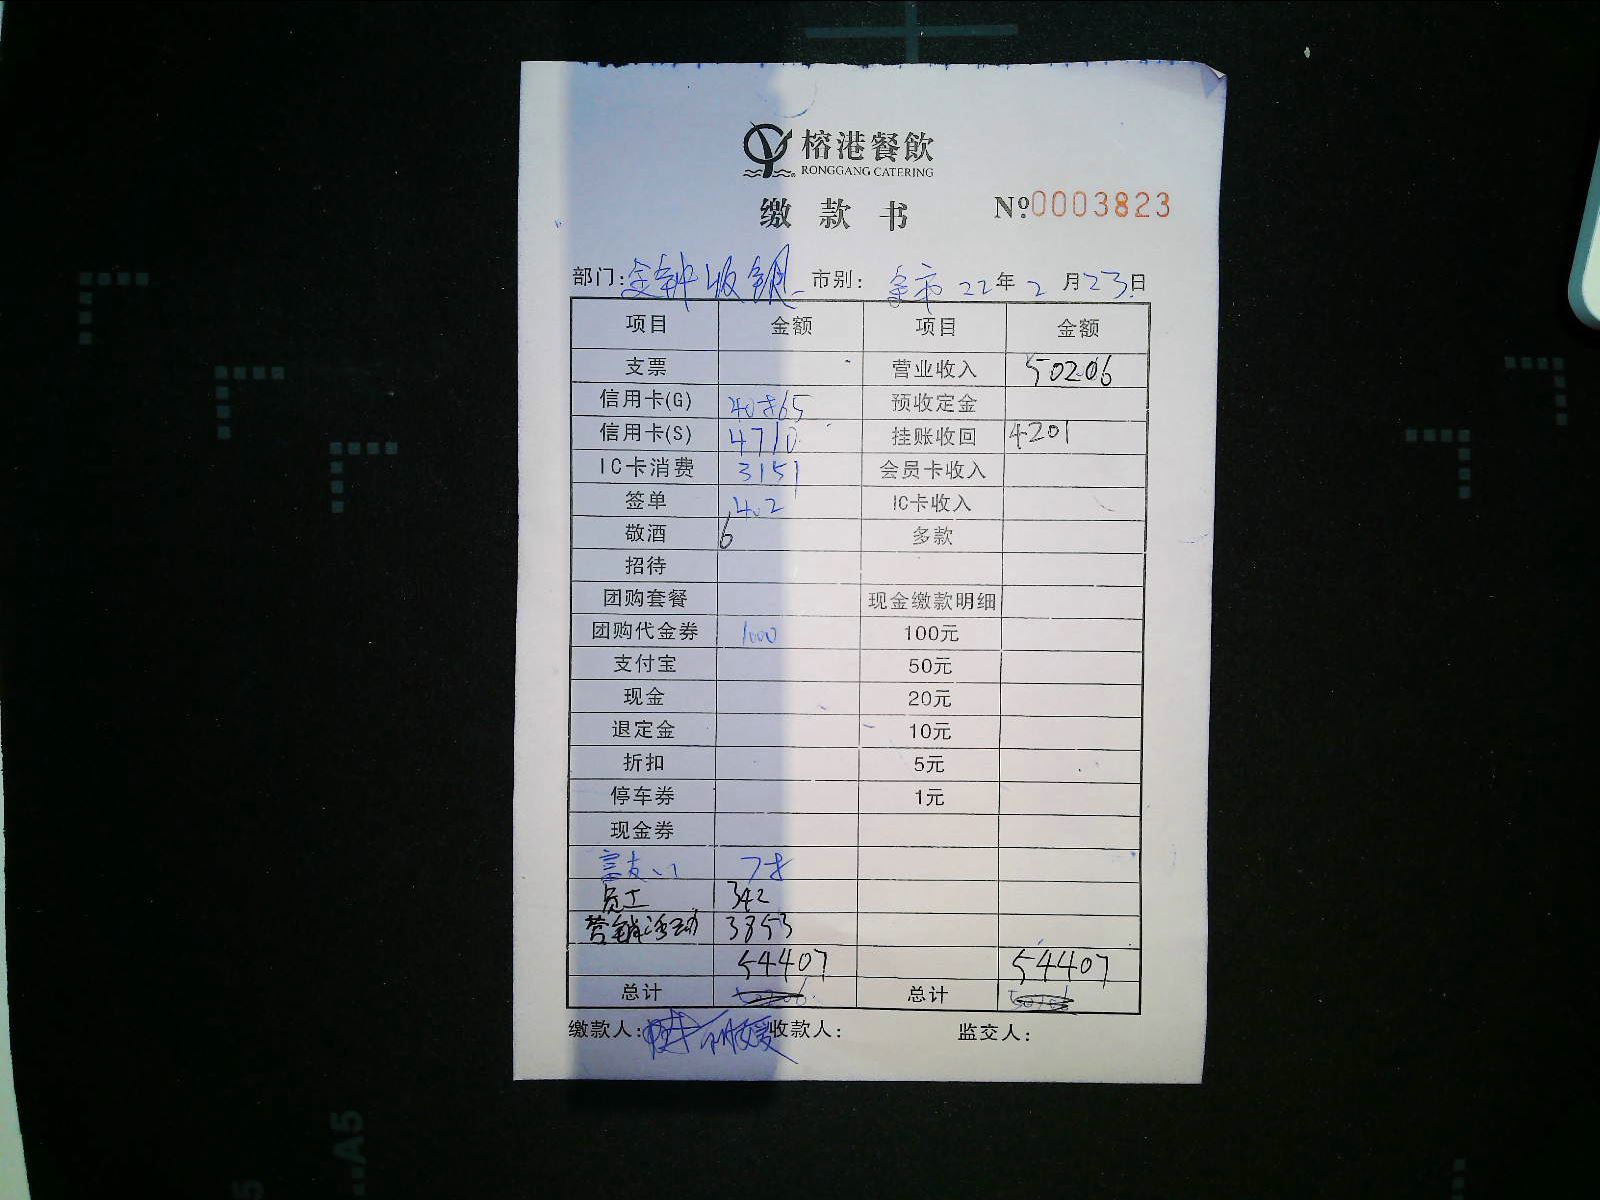 榕港餐飲
RONGGANG CATERING
缴款书 №0003823
部门:金钟收银 市别:全市 22年2月23日
项目 金额 项目 金额
支票 营业收入 50206
信用卡(G) 40865 预收定金
信用卡(S) 4710 挂账收回 4201
IC卡消费 3151 会员卡收入
签单 402 IC卡收入
敬酒 6 多款
招待
团购套餐 现金缴款明细
团购代金券 1000 100元
支付宝 50元
现金 20元
退定金 10元
折扣 5元
停车券 1元
现金券
78
员工 342
营销活动 3853
54407 54407
总计 总计
缴款人: 收款人: 监交人:
A5